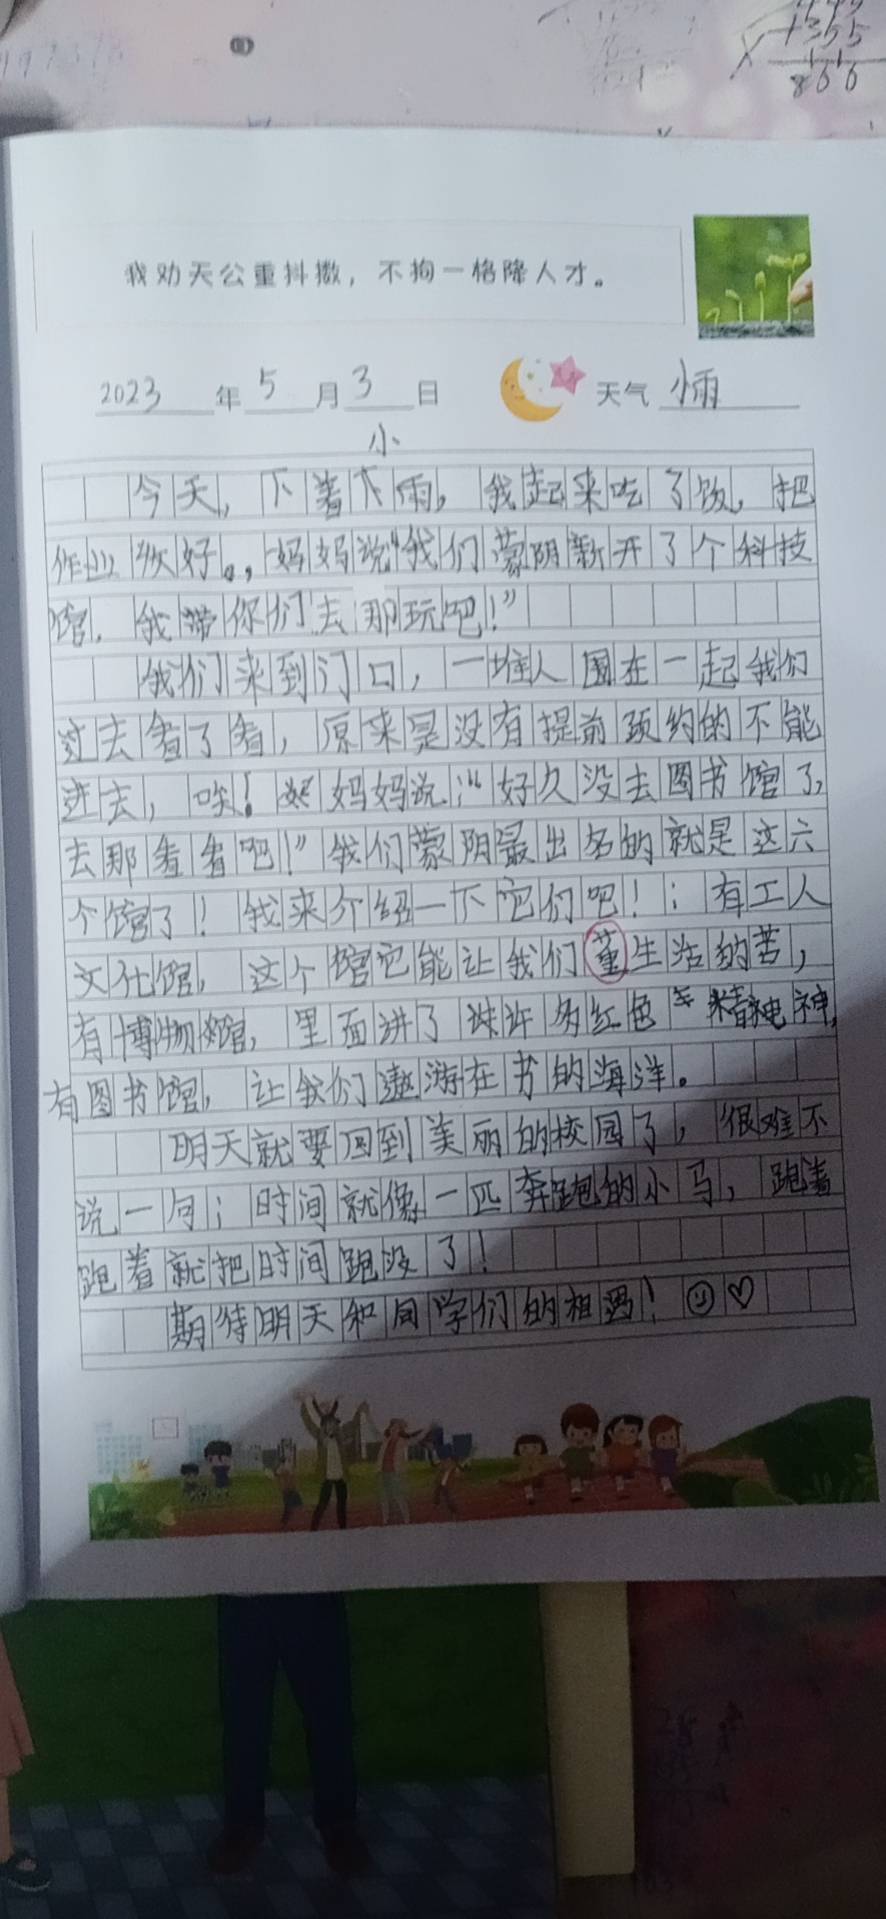 +355
866
我劝天公重抖擞，不拘一格降人才。
2023年5月3日 天气 小雨
小
今天，下着下雨，我起来吃了饭，把
作业做好。，妈妈说“我们蒙阴新开了个科技
馆，我带你们去那玩吧！”
我们来到门口，一堆人围在一起我们
过去看了看，原来是没有提前预约的不能
进去，唉！妈妈说：“好久没去图书馆了，
去那看看吧！”我们蒙阴最出名的就是这六
个馆了！我来介绍一下它们吧！：有工人
文化馆，这个馆它能让我们董生活的苦，
有博物馆，里面讲了许多红色精神，
有图书馆，让我们遨游在书的海洋。
明天就要回到美丽的校园了，很难不
说一句；时间就像一匹奔跑的小马，跑着
跑着就把时间跑没了！
期待明天和同学们的相遇！☺♡